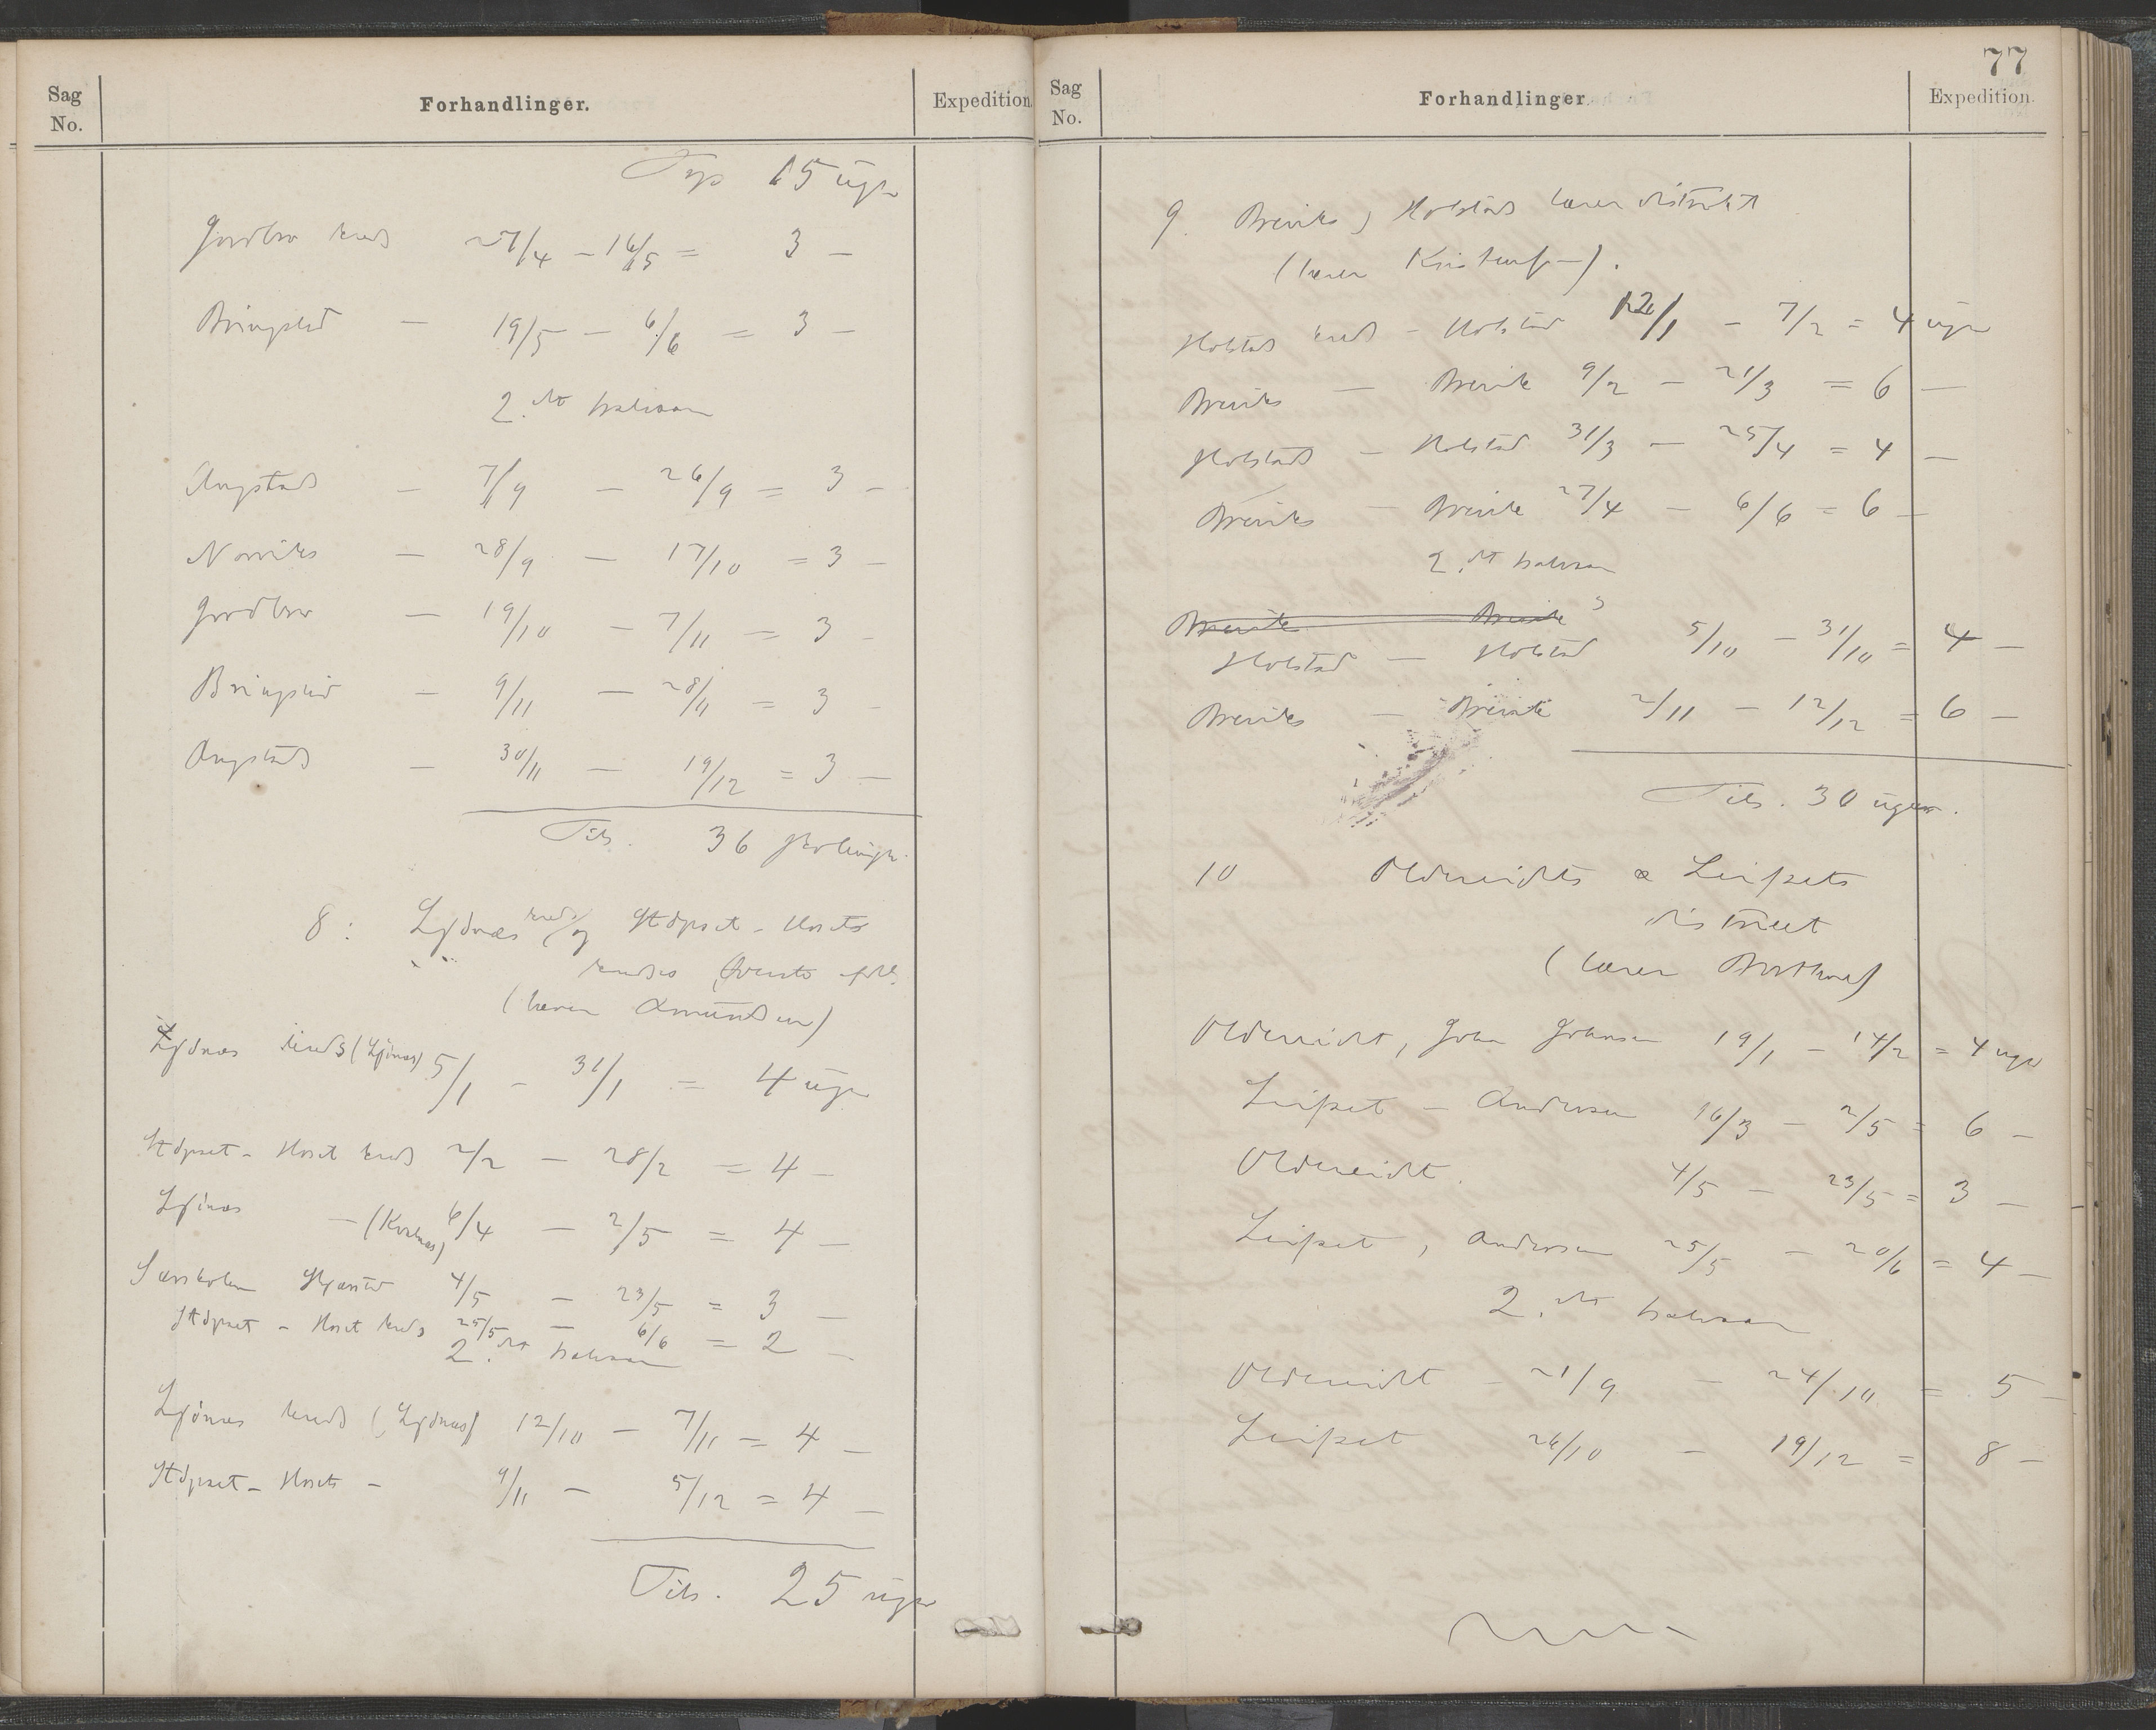 Sag No.
Forhandlinger.
Expedition.
15 uger
Jordbro kreds 27/4 - 16/5 = 3 -
Bringslid - 19/5 - 6/6 = 3 -
2.det halvaar
Angstad - 7/9 - 26/9 = 3 -
Norviks - 28/9 - 17/10 = 3 -
Jordbro - 19/10 - 7/11 = 3 -
Bringslid - 9/11 - 28/11 = 3 -
Angstad - 30/11 - 19/12 = 3 -
Tils. 36 skoleuger
8: Ljønæs kreds og Støpset - Hosets
kredse
(lærer Amundsen)
Ljønæs kreds (Ljønæs) 5/1 - 31/1 = 4 uger
Støpset - Hoset kreds 2/2 - 28/2 = 4 -
Ljønæs - (Kvalnæs) 6/4 - 2/5 = 4 -
4/5 - 23/5 = 3 -
Støpset - Hoset kreds 25/5 - 6/6 = 2 -
2.det halvaar
Ljønæs kreds (Ljønæs) 12/10 - 7/11 = 4 -
Støpset - Hosets - 9/11 - 5/12 = 4 -
Tils. 25 uger
77
Sag No.
Forhandlinger.
Expedition.
9. Breviks, Holstads lærerdistrikt
(lærer Kristensen).
Holstad kreds - Holstad 12/1 - 7/2 = 4 uger
Breviks - Brevik 9/2 - 21/3 = 6 -
Holstads - Holstad 31/3 - 25/4 = 4 -
Breviks - Brevik 27/4 - 6/6 = 6 -
2.det halvaar
Brevik Brevik
Holstad - Holstad 5/10 - 31/10 = 4 -
Breviks - Brevik 2/11 - 12/12 = 6 -
Tils. 30 uger.
10 Oldereidets & Leifsets
district
(lærer
Oldereidet, Johan Johansen 19/1 - 14/2 = 4 uger
Leifset - Andersen 16/3 - 2/5 = 6 -
Oldereidet. 4/5 - 23/5 = 3 -
Leifset, Andersen 25/5 - 20/6 = 4 -
2.det halvaar
Oldereidet - 21/9 - 24/10 = 5 -
Leifset 26/10 - 19/12 = 8 -